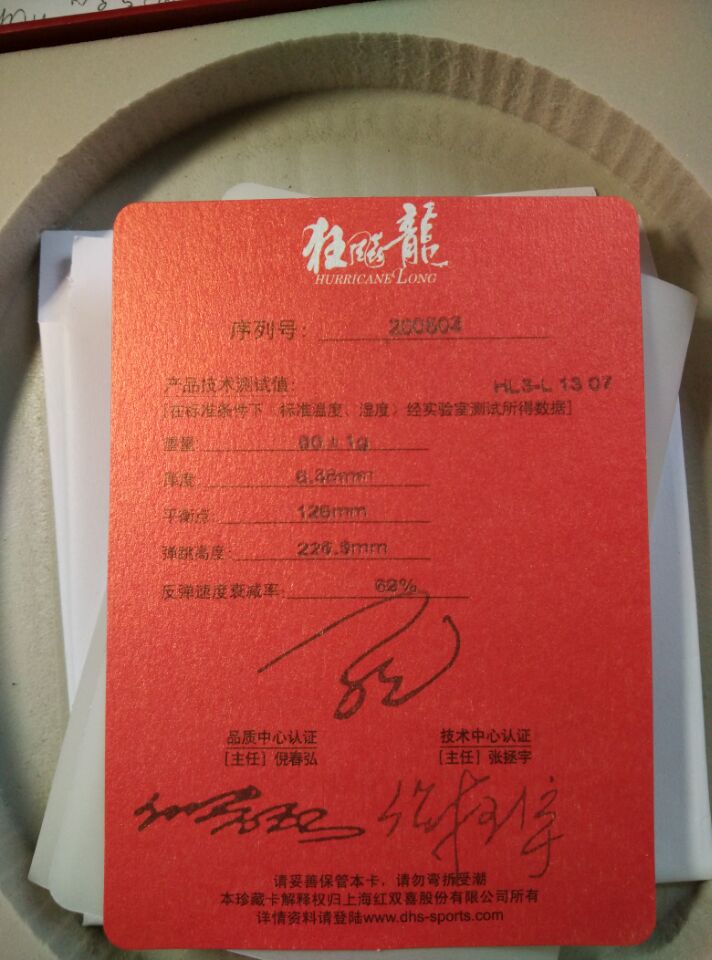 狂飚龍
HURRICANE LONG
序列号：
产品技术测试值： HL3-L 13 07
[在标准条件下（标准温度、湿度）经实验室测试所得数据]
重量： 90±1g
厚度：
平衡点： 126mm
弹跳高度： 226.9mm
反弹速度衰减率：
品质中心认证 技术中心认证
[主任] 倪春弘 [主任] 张拯宇
请妥善保管本卡，请勿弯折受潮
本珍藏卡解释权归上海红双喜股份有限公司所有
详情资料请登陆www.dhs-sports.com